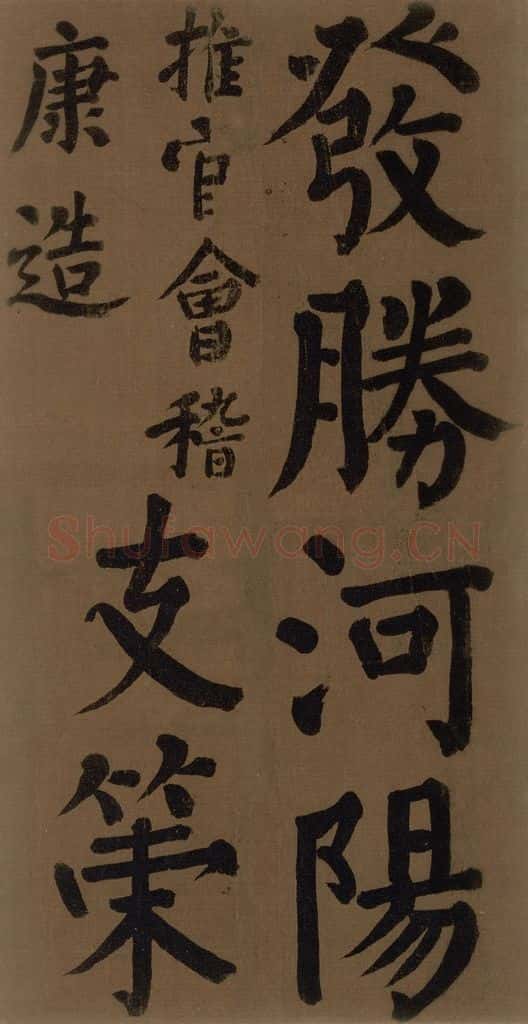 發勝河陽
支策
推官會稽
康造
Shufawang.CN